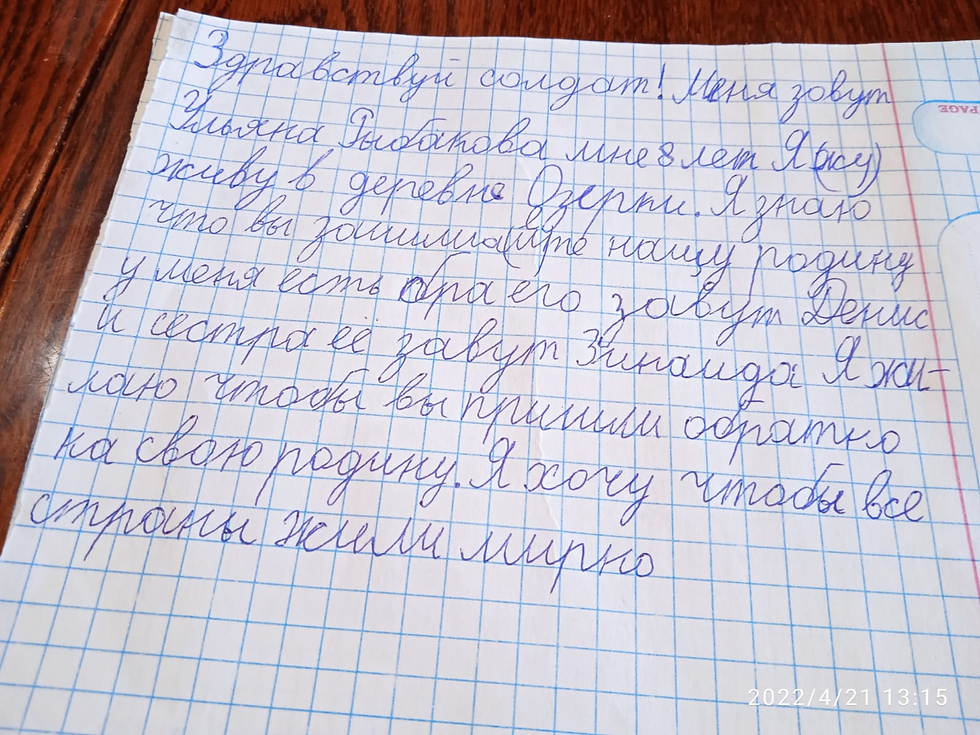 Здравствуй солдат! Меня зовут
PAGE
Ульяна Рыбакова мне 8 лет Я (жу)
живу в деревне Озерки. Я знаю
что вы нашу родину
у меня есть бра его завут Денис
и сестра её завут Зинаида Я жи-
лаю чтобы вы пришли обратно
на свою родину. Я хочу чтобы все
страны жили мирно
2022/4/21 13:15